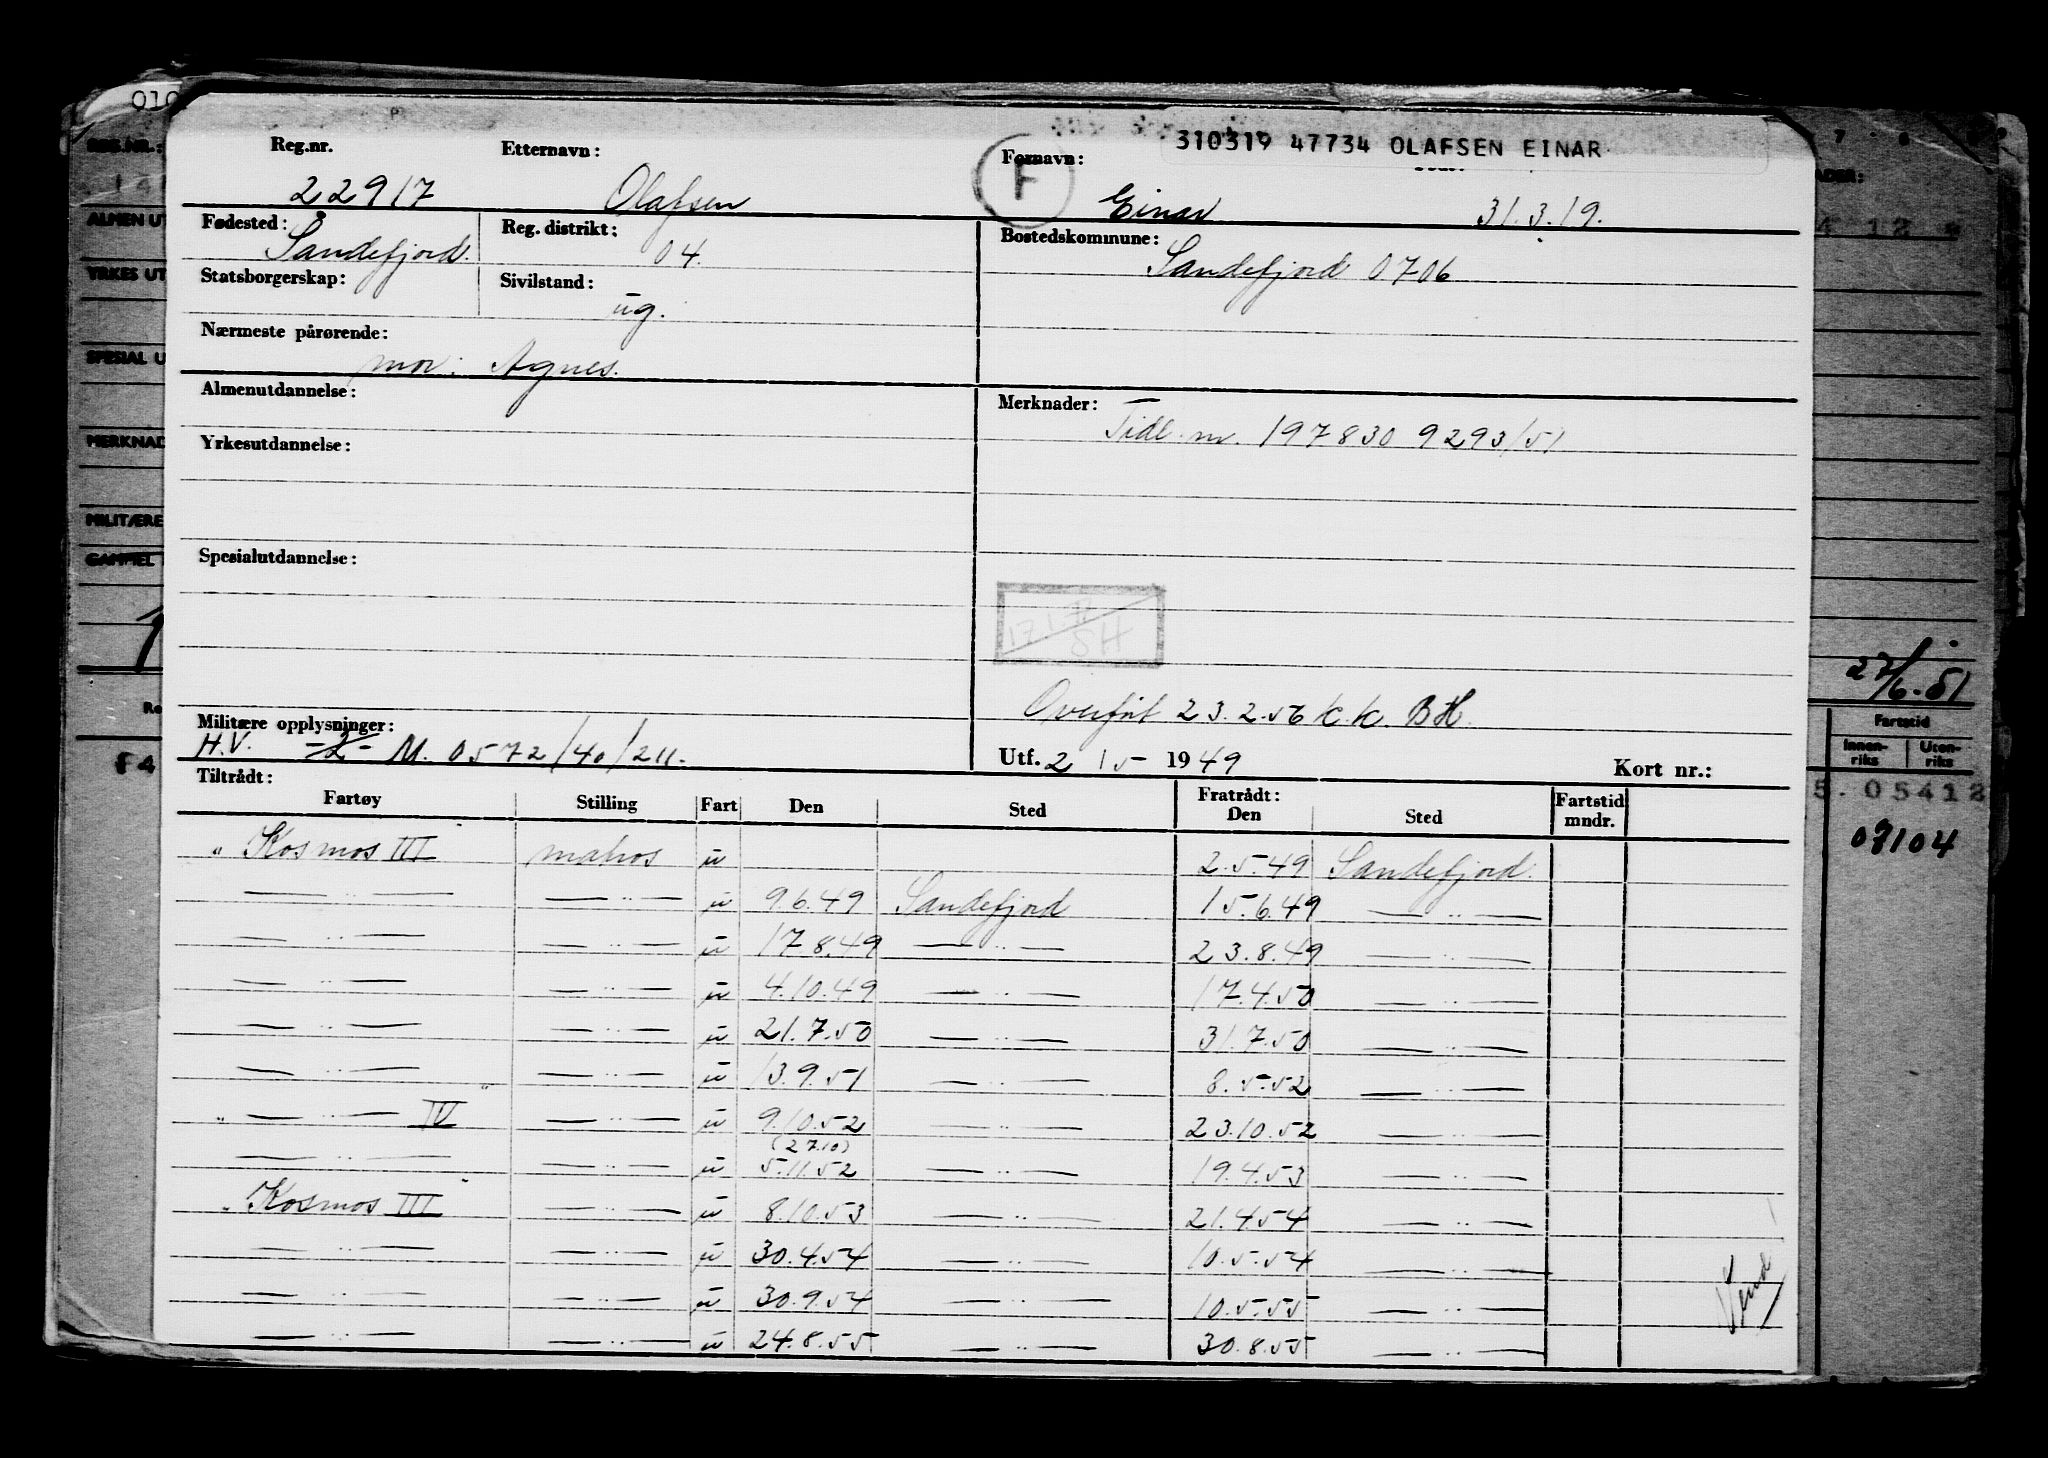 010
310319 47734 OLAFSEN EINAR
Reg.nr. Etternavn: Fornavn: F
22917 Olafsen Einar 31.3.19.
Fødested: Reg. distrikt: Bostedskommune:
Sandefjord. 04. Sandefjord 0706
Statsborgerskap: Sivilstand:
ug.
Nærmeste pårørende:
mor: Agnes.
Almenutdannelse: Merknader:
Tidl. nr. 197830 9293/51
Yrkesutdannelse:
Spesialutdannelse:
Overført 23.2.56 k.k. BH.
Militære opplysninger:
H.V. M. 0572/40/211. Utf. 2/5- 1949 Kort nr.:
Tiltrådt: Fratrådt:
Fartøy Stilling Fart Den Sted Den Sted Fartstid mndr.
"Kosmos III" matros u 2.5.49 Sandefjord.
— " — — " — u 9.6.49 Sandefjord 15.6.49 — " —
— " — — " — u 17.8.49 — " — 23.8.49 — " —
— " — — " — u 4.10.49 — " — 17.4.50 — " —
— " — — " — u 21.7.50 — " — 31.7.50 — " —
— " — — " — u 13.9.51 — " — 8.5.52 — " —
" — " — IV" — " — u 9.10.52 — " — 23.10.52 — " —
(27.10)
— " — — " — u 5.11.52 — " — 19.4.53 — " —
"Kosmos III" — " — u 8.10.53 — " — 21.4.54 — " —
— " — — " — u 30.4.54 — " — 10.5.54 — " —
— " — — " — u 30.9.54 — " — 10.5.55 — " —
— " — — " — u 24.8.55 — " — 30.8.55 — " —
Vend
REG.NR.:
ALMEN UT
YRKES UT
SPESIAL U
MERKNAD
MILITÆRE
GAMMEL
F4
7 8
27/6-51
Fartstid
Innen-riks Uten-riks
5.05412
09104